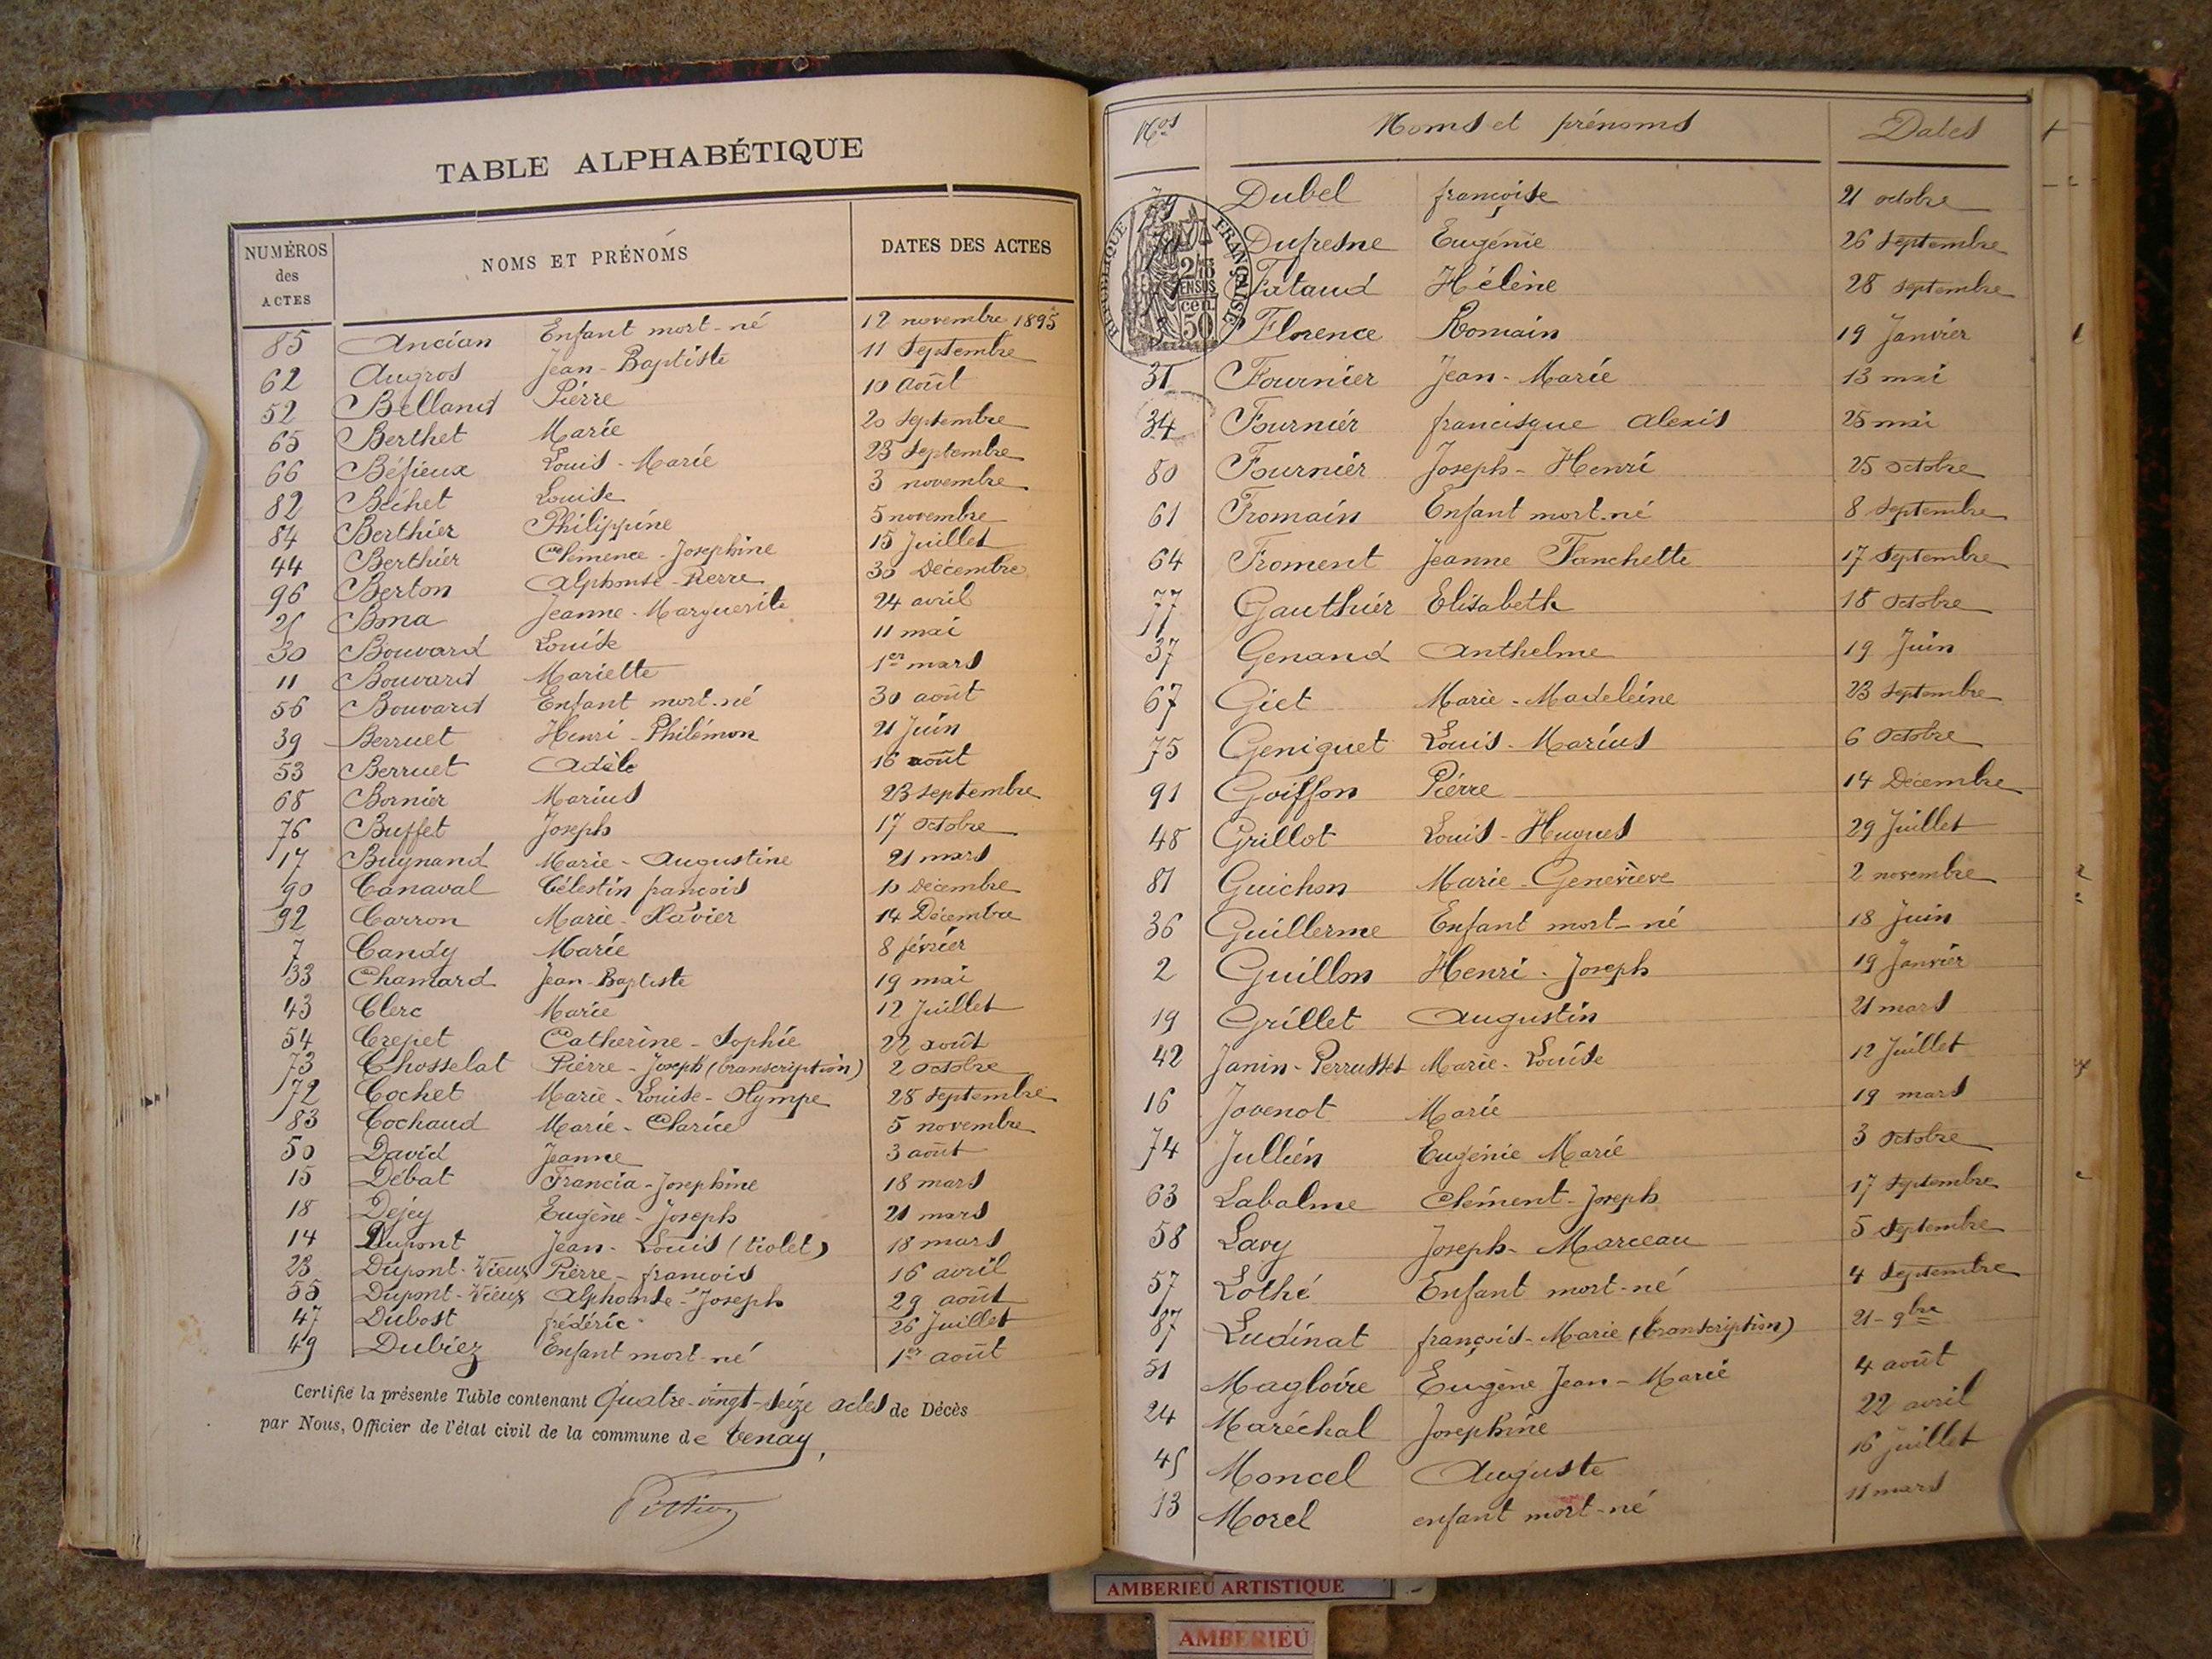 TABLE ALPHABÉTIQUE
NUMÉROS des ACTES NOMS ET PRÉNOMS DATES DES ACTES
85 Ancian Enfant mort-né 12 novembre 1895
62 Augros Jean-Baptiste 11 Septembre
52 Belland Pierre 10 août
65 Berthet Marie 20 septembre
66 Béfieux Louis-Marie 23 Septembre
82 Béchet Louise 3 novembre
84 Berthier Philippine 5 novembre
44 Berthier Clémence-Josephine 15 Juillet
96 Berton Alphonse-Pierre 30 Décembre
25 Bona Jeanne-Marguerite 24 avril
30 Bouvard Louise 11 mai
11 Bouvard Mariette 1er mars
56 Bouvard Enfant mort-né 30 août
39 Berruet Henri-Philémon 21 Juin
53 Berruet Adèle 16 août
68 Bornier Marius 23 septembre
76 Buffet Joseph 17 Octobre
17 Buynand Marie-Augustine 21 mars
90 Canaval Célestin françois 10 Décembre
92 Carron Marie-Xavier 14 Décembre
7 Candy Marie 8 février
33 Chamard Jean-Baptiste 19 mai
43 Clerc Marie 12 Juillet
54 Crepet Catherine-Sophie 22 août
73 Chosselat Pierre-Joseph (transcription) 2 Octobre
72 Cochet Marie-Louise-Olympe 28 septembre
83 Cochaud Marie-Clarice 5 novembre
50 David Jeanne 3 août
15 Débat Francia-Josephine 18 mars
18 Dejey Eugène-Joseph 21 mars
14 Dupont Jean-Louis (violet) 18 mars
23 Dupont-Vieux Pierre-françois 16 avril
55 Dupont-Vieux Alphonse-Joseph 29 août
47 Dubost fréderic 26 Juillet
49 Dubiez Enfant mort-né 1er août
Certifié la présente Table contenant Quatre-vingt-seize actes de Décès
par Nous, Officier de l'état civil de la commune de tenay,
Nos Noms et prénoms Dates
79 Dubel françoise 21 octobre
70 Dufresne Eugénie 26 Septembre
Fataud Hélène 28 septembre
Florence Romain 19 Janvier
RÉPUBLIQUE FRANÇAISE
2/10 EN SUS
1 fr cen. 50
31 Fournier Jean-Marie 13 mai
34 Fournier francisque Alexis 25 mai
80 Fournier Joseph-Henri 25 Octobre
61 Fromain Enfant mort-né 8 Septembre
64 Froment Jeanne Fanchette 17 Septembre
77 Gauthier Elisabeth 18 Octobre
37 Genand Anthelme 19 Juin
67 Giet Marie-Madeleine 23 Septembre
75 Geniquet Louis-Marius 6 Octobre
91 Goiffon Pierre 14 Décembre
48 Grillot Louis-Hugues 29 Juillet
81 Guichon Marie-Geneviève 2 novembre
36 Guillerme Enfant mort-né 18 Juin
2 Guillon Henri-Joseph 19 Janvier
19 Grillet Augustin 21 mars
42 Janin-Perrusset Marie-Louise 12 Juillet
16 Jovenot Marie 19 mars
74 Jullien Eugénie Marie 3 Octobre
63 Labalme Clément-Joseph 17 Septembre
58 Lavy Joseph-Marceau 5 Septembre
57 Lothé Enfant mort-né 4 Septembre
87 Ludinat françois-Marie (transcription) 21-9bre
51 Magloire Eugène Jean-Marie 4 août
24 Maréchal Josephine 22 avril
45 Moncel Auguste 16 juillet
13 Morel enfant mort-né 11 mars
AMBERIEU ARTISTIQUE
AMBERIEU